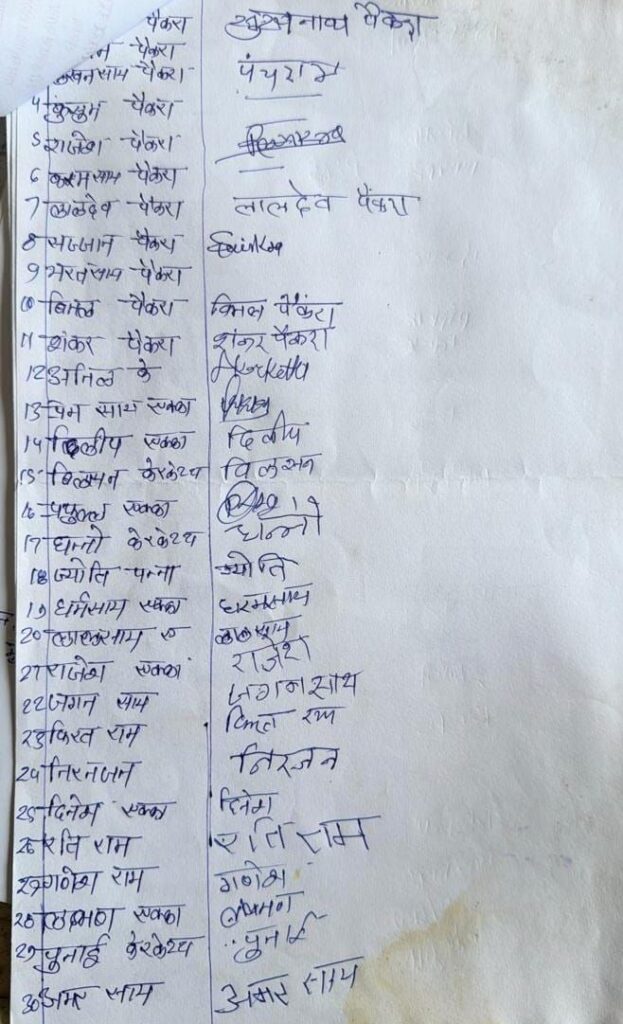 पैकरा सुखनाथ पैकरा
पैकरा
लखनसाय पैकरा पंचराम
4 कुसुम पैकरा
5 राजेश पैकरा
6 करमसाय पैकरा
7 लालदेव पैकरा लालदेव पैंकरा
8 सज्जान पैकरा
9 भरतसाय पैकरा
10 बिमल पैकरा विमल पैकरा
11 शंकर पैकरा शंकर पैकरा
12 अनिल के
13 प्रेम साय एक्का
14 दिलीप एक्का दिलीप
15 बिलसन केरकेट्टा विलसन
16 एक्का
17 धन्नो केरकेट्टा धन्नो
18 ज्योति पन्ना ज्योति
19 धर्मसाय एक्का धरमसाय
20 लालसाय ए लालसाय
21 राजेश एक्का राजेश
22 जगन साय जगनसाय
23 किरत राम किरत राम
24 निरनजन निरजन
25 दिनेश एक्का दिनेश
26 रति राम रति राम
27 गणेश राम गणेश
28 एक्का
29 पुनाई केरकेट्टा पुनाई
30 अमर साय अमर साय